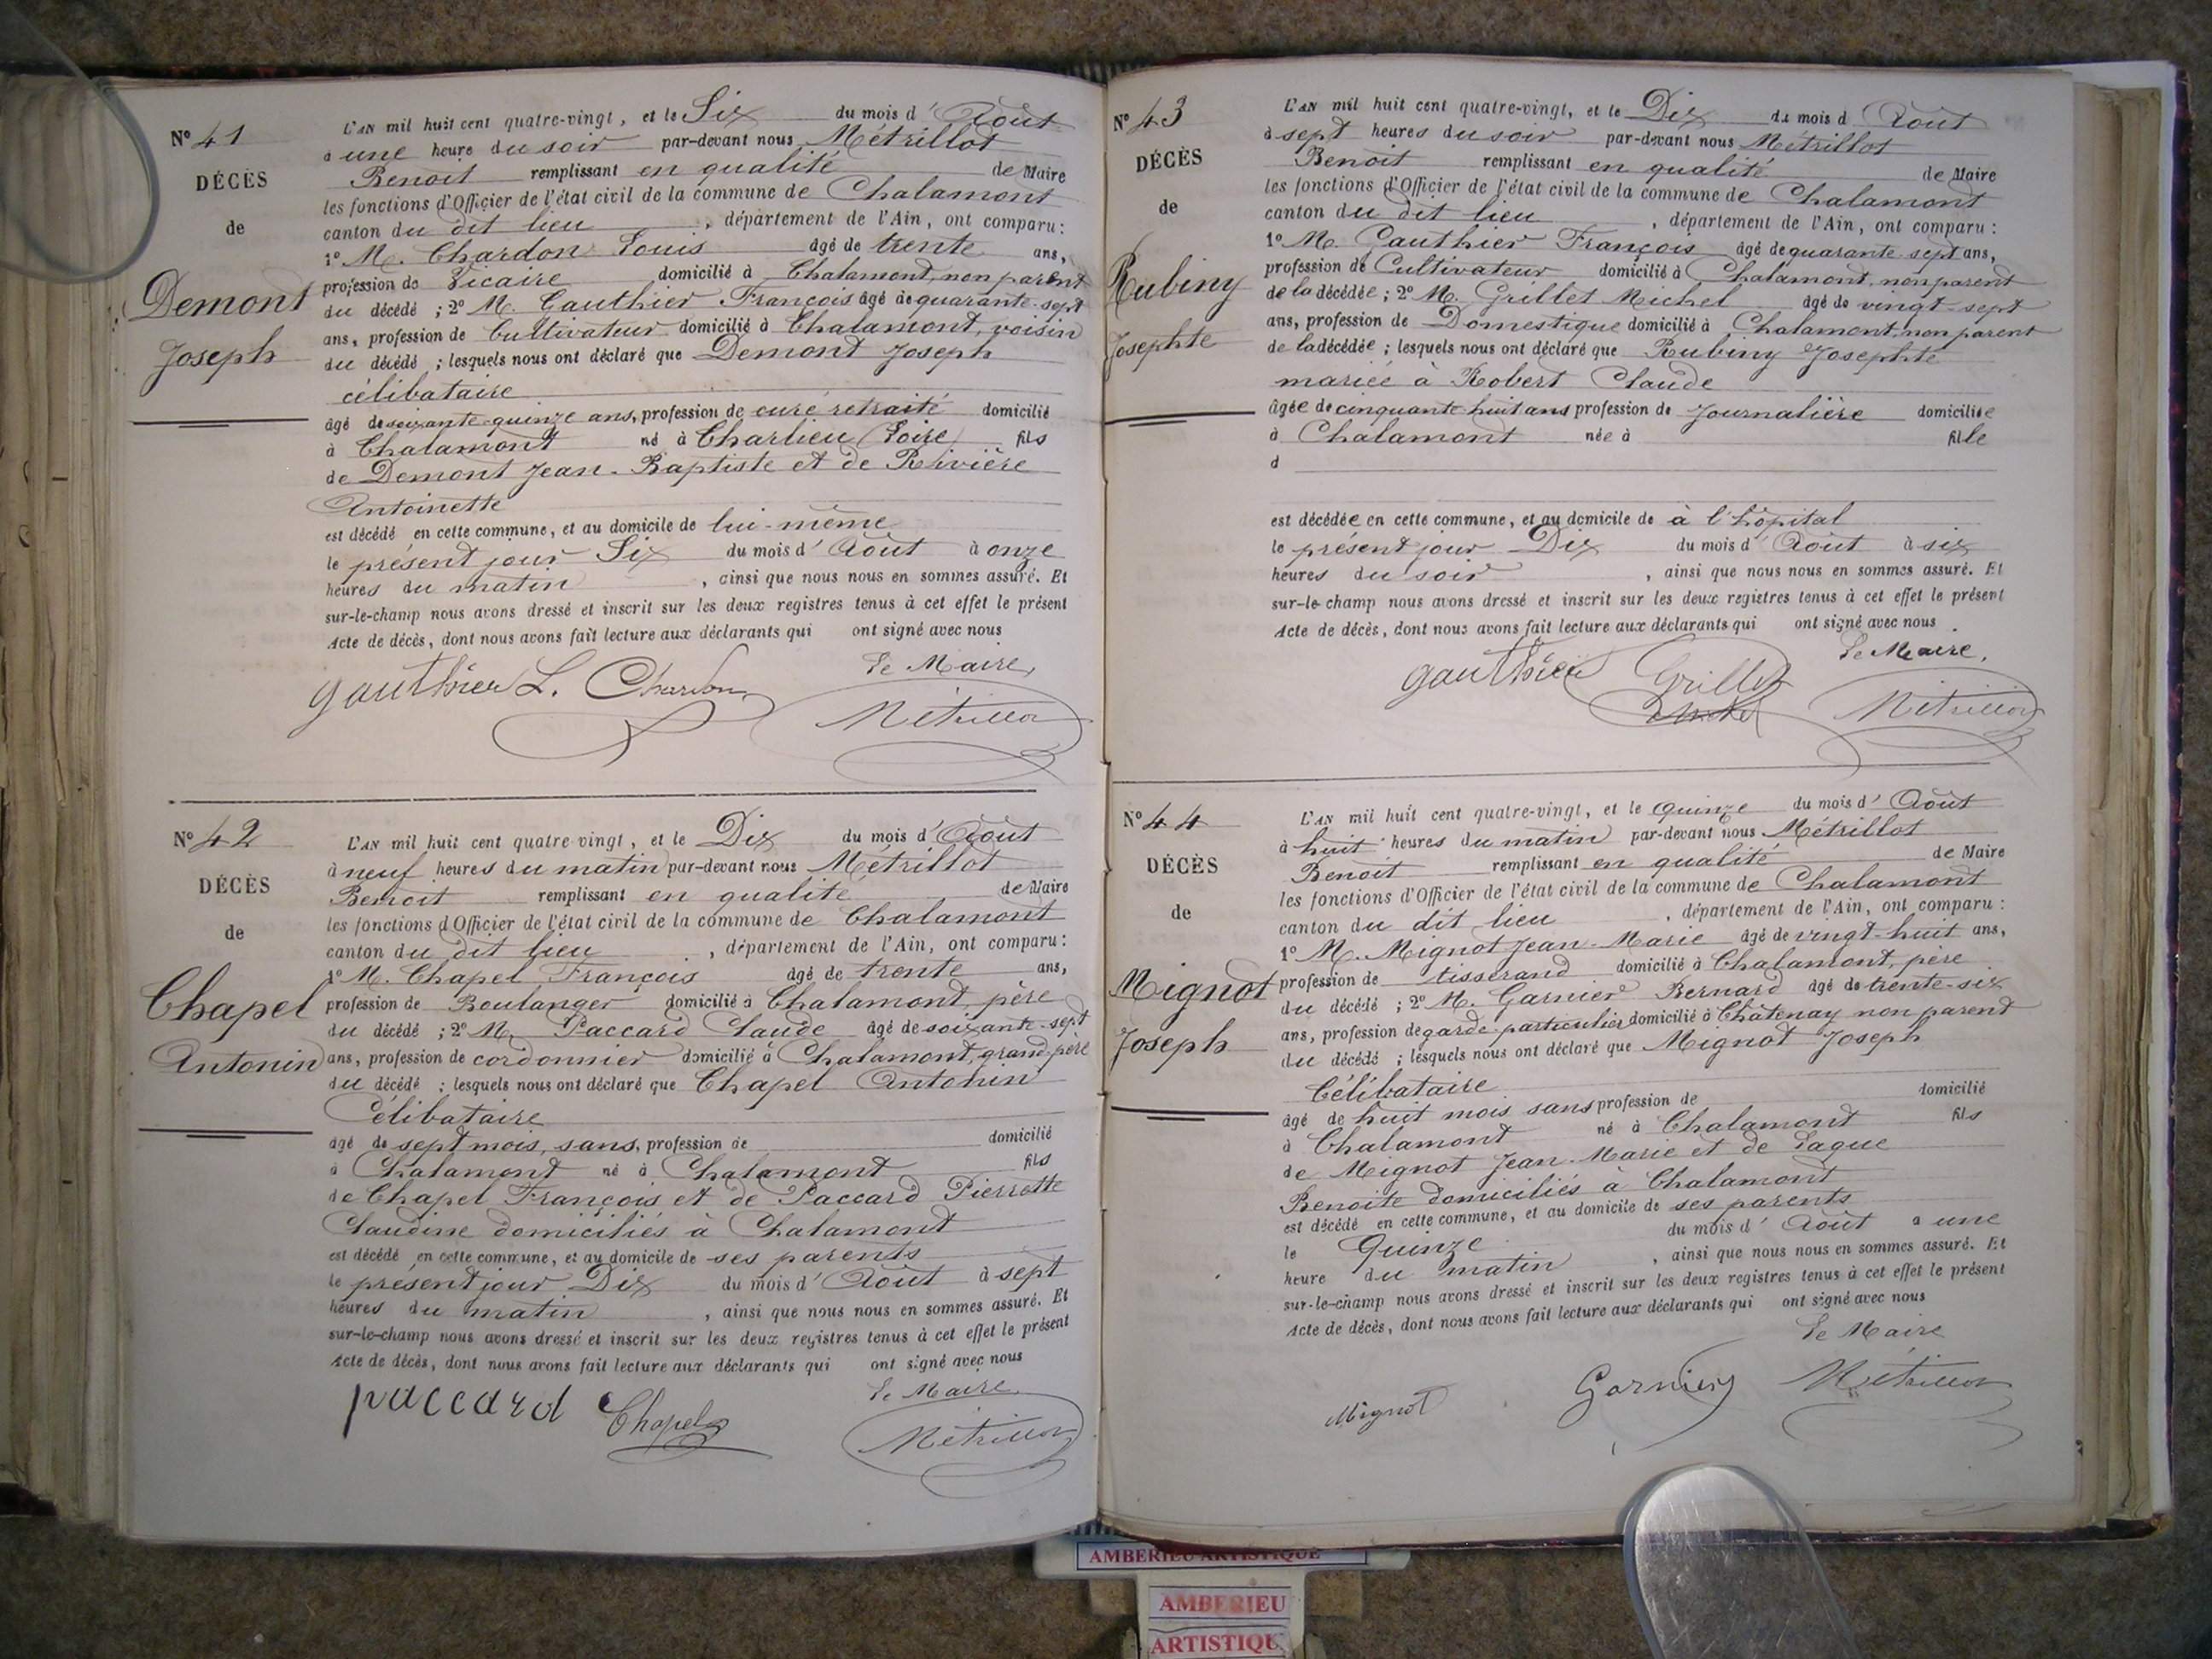 N° 41
DÉCÈS
de
Demont
Joseph
L'AN mil huit cent quatre-vingt, et le Six du mois d'Août
à une heure du soir par-devant nous Métrillot
Benoit remplissant en qualité de Maire
les fonctions d'Officier de l'état civil de la commune de Chalamont
canton du dit lieu, département de l'Ain, ont comparu:
1° M. Chardon Louis âgé de trente ans,
profession de Vicaire domicilié à Chalamont, non parent
du décédé; 2° M. Gauthier François âgé de quarante-sept
ans, profession de Cultivateur domicilié à Chalamont, voisin
du décédé; lesquels nous ont déclaré que Demont Joseph
célibataire
âgé de soixante-quinze ans, profession de curé retraité domicilié
à Chalamont né à Charlieu (Loire) fils
de Demont Jean-Baptiste et de Rivière
Antoinette
est décédé en cette commune, et au domicile de lui-même
le présent jour Six du mois d'Août à onze
heures du matin, ainsi que nous nous en sommes assuré. Et
sur-le-champ nous avons dressé et inscrit sur les deux registres tenus à cet effet le présent
Acte de décès, dont nous avons fait lecture aux déclarants qui ont signé avec nous
Le Maire,
gauthier L. Chardon Métrillot
N° 42
DÉCÈS
de
Chapel
Antonin
L'AN mil huit cent quatre-vingt, et le Dix du mois d'Août
à neuf heures du matin par-devant nous Métrillot
Benoit remplissant en qualité de Maire
les fonctions d'Officier de l'état civil de la commune de Chalamont
canton du dit lieu, département de l'Ain, ont comparu:
1° M. Chapel François âgé de trente ans,
profession de Boulanger domicilié à Chalamont, père
du décédé; 2° M. Paccard Claude âgé de soixante-sept
ans, profession de cordonnier domicilié à Chalamont, grand-père
du décédé; lesquels nous ont déclaré que Chapel Antonin
Célibataire
âgé de sept mois, sans, profession de domicilié
à Chalamont né à Chalamont fils
de Chapel François et de Paccard Pierrette
Claudine domiciliés à Chalamont
est décédé en cette commune, et au domicile de ses parents
le présent jour Dix du mois d'Août à sept
heures du matin, ainsi que nous nous en sommes assuré. Et
sur-le-champ nous avons dressé et inscrit sur les deux registres tenus à cet effet le présent
Acte de décès, dont nous avons fait lecture aux déclarants qui ont signé avec nous
Le Maire
paccard Chapel Métrillot
N° 43
DÉCÈS
de
Rubiny
Josephte
L'AN mil huit cent quatre-vingt, et le Dix du mois d Août
à sept heures du soir par-devant nous Métrillot
Benoit remplissant en qualité de Maire
les fonctions d'Officier de l'état civil de la commune de Chalamont
canton du dit lieu, département de l'Ain, ont comparu:
1° M. Gauthier François âgé de quarante sept ans,
profession de Cultivateur domicilié à Chalamont, non parent
de la décédée; 2° M. Grillet Michel âgé de vingt-sept
ans, profession de Domestique domicilié à Chalamont, non parent
de la décédée; lesquels nous ont déclaré que Rubiny Josephte
mariée à Robert Claude
âgée de cinquante-huit ans profession de Journalière domiciliée
à Chalamont née à fille
d
est décédée en cette commune, et au domicile de à l'hôpital
le présent jour Dix du mois d'Août à six
heures du soir, ainsi que nous nous en sommes assuré. Et
sur-le-champ nous avons dressé et inscrit sur les deux registres tenus à cet effet le présent
Acte de décès, dont nous avons fait lecture aux déclarants qui ont signé avec nous
Le Maire,
gauthier Grillet Métrillot
Michel
N° 44
DÉCÈS
de
Mignot
Joseph
L'AN mil huit cent quatre-vingt, et le Quinze du mois d'Août
à huit heures du matin par-devant nous Métrillot
Benoit remplissant en qualité de Maire
les fonctions d'Officier de l'état civil de la commune de Chalamont
canton du dit lieu, département de l'Ain, ont comparu:
1° M. Mignot Jean-Marie âgé de vingt-huit ans,
profession de tisserand domicilié à Chalamont, père
du décédé; 2° M. Garnier Bernard âgé de trente-six
ans, profession de garde-particulier domicilié à Châtenay non parent
du décédé; lesquels nous ont déclaré que Mignot Joseph
Célibataire
âgé de huit mois sans profession de domicilié
à Chalamont né à Chalamont fils
de Mignot Jean-Marie et de Laque
Benoite domiciliés à Chalamont
est décédé en cette commune, et au domicile de ses parents
le Quinze du mois d'Août à une
heure du matin, ainsi que nous nous en sommes assuré. Et
sur-le-champ nous avons dressé et inscrit sur les deux registres tenus à cet effet le présent
Acte de décès, dont nous avons fait lecture aux déclarants qui ont signé avec nous
Le Maire
Mignot Garnier Métrillot
AMBERIEU ARTISTIQUE
AMBERIEU
ARTISTIQU